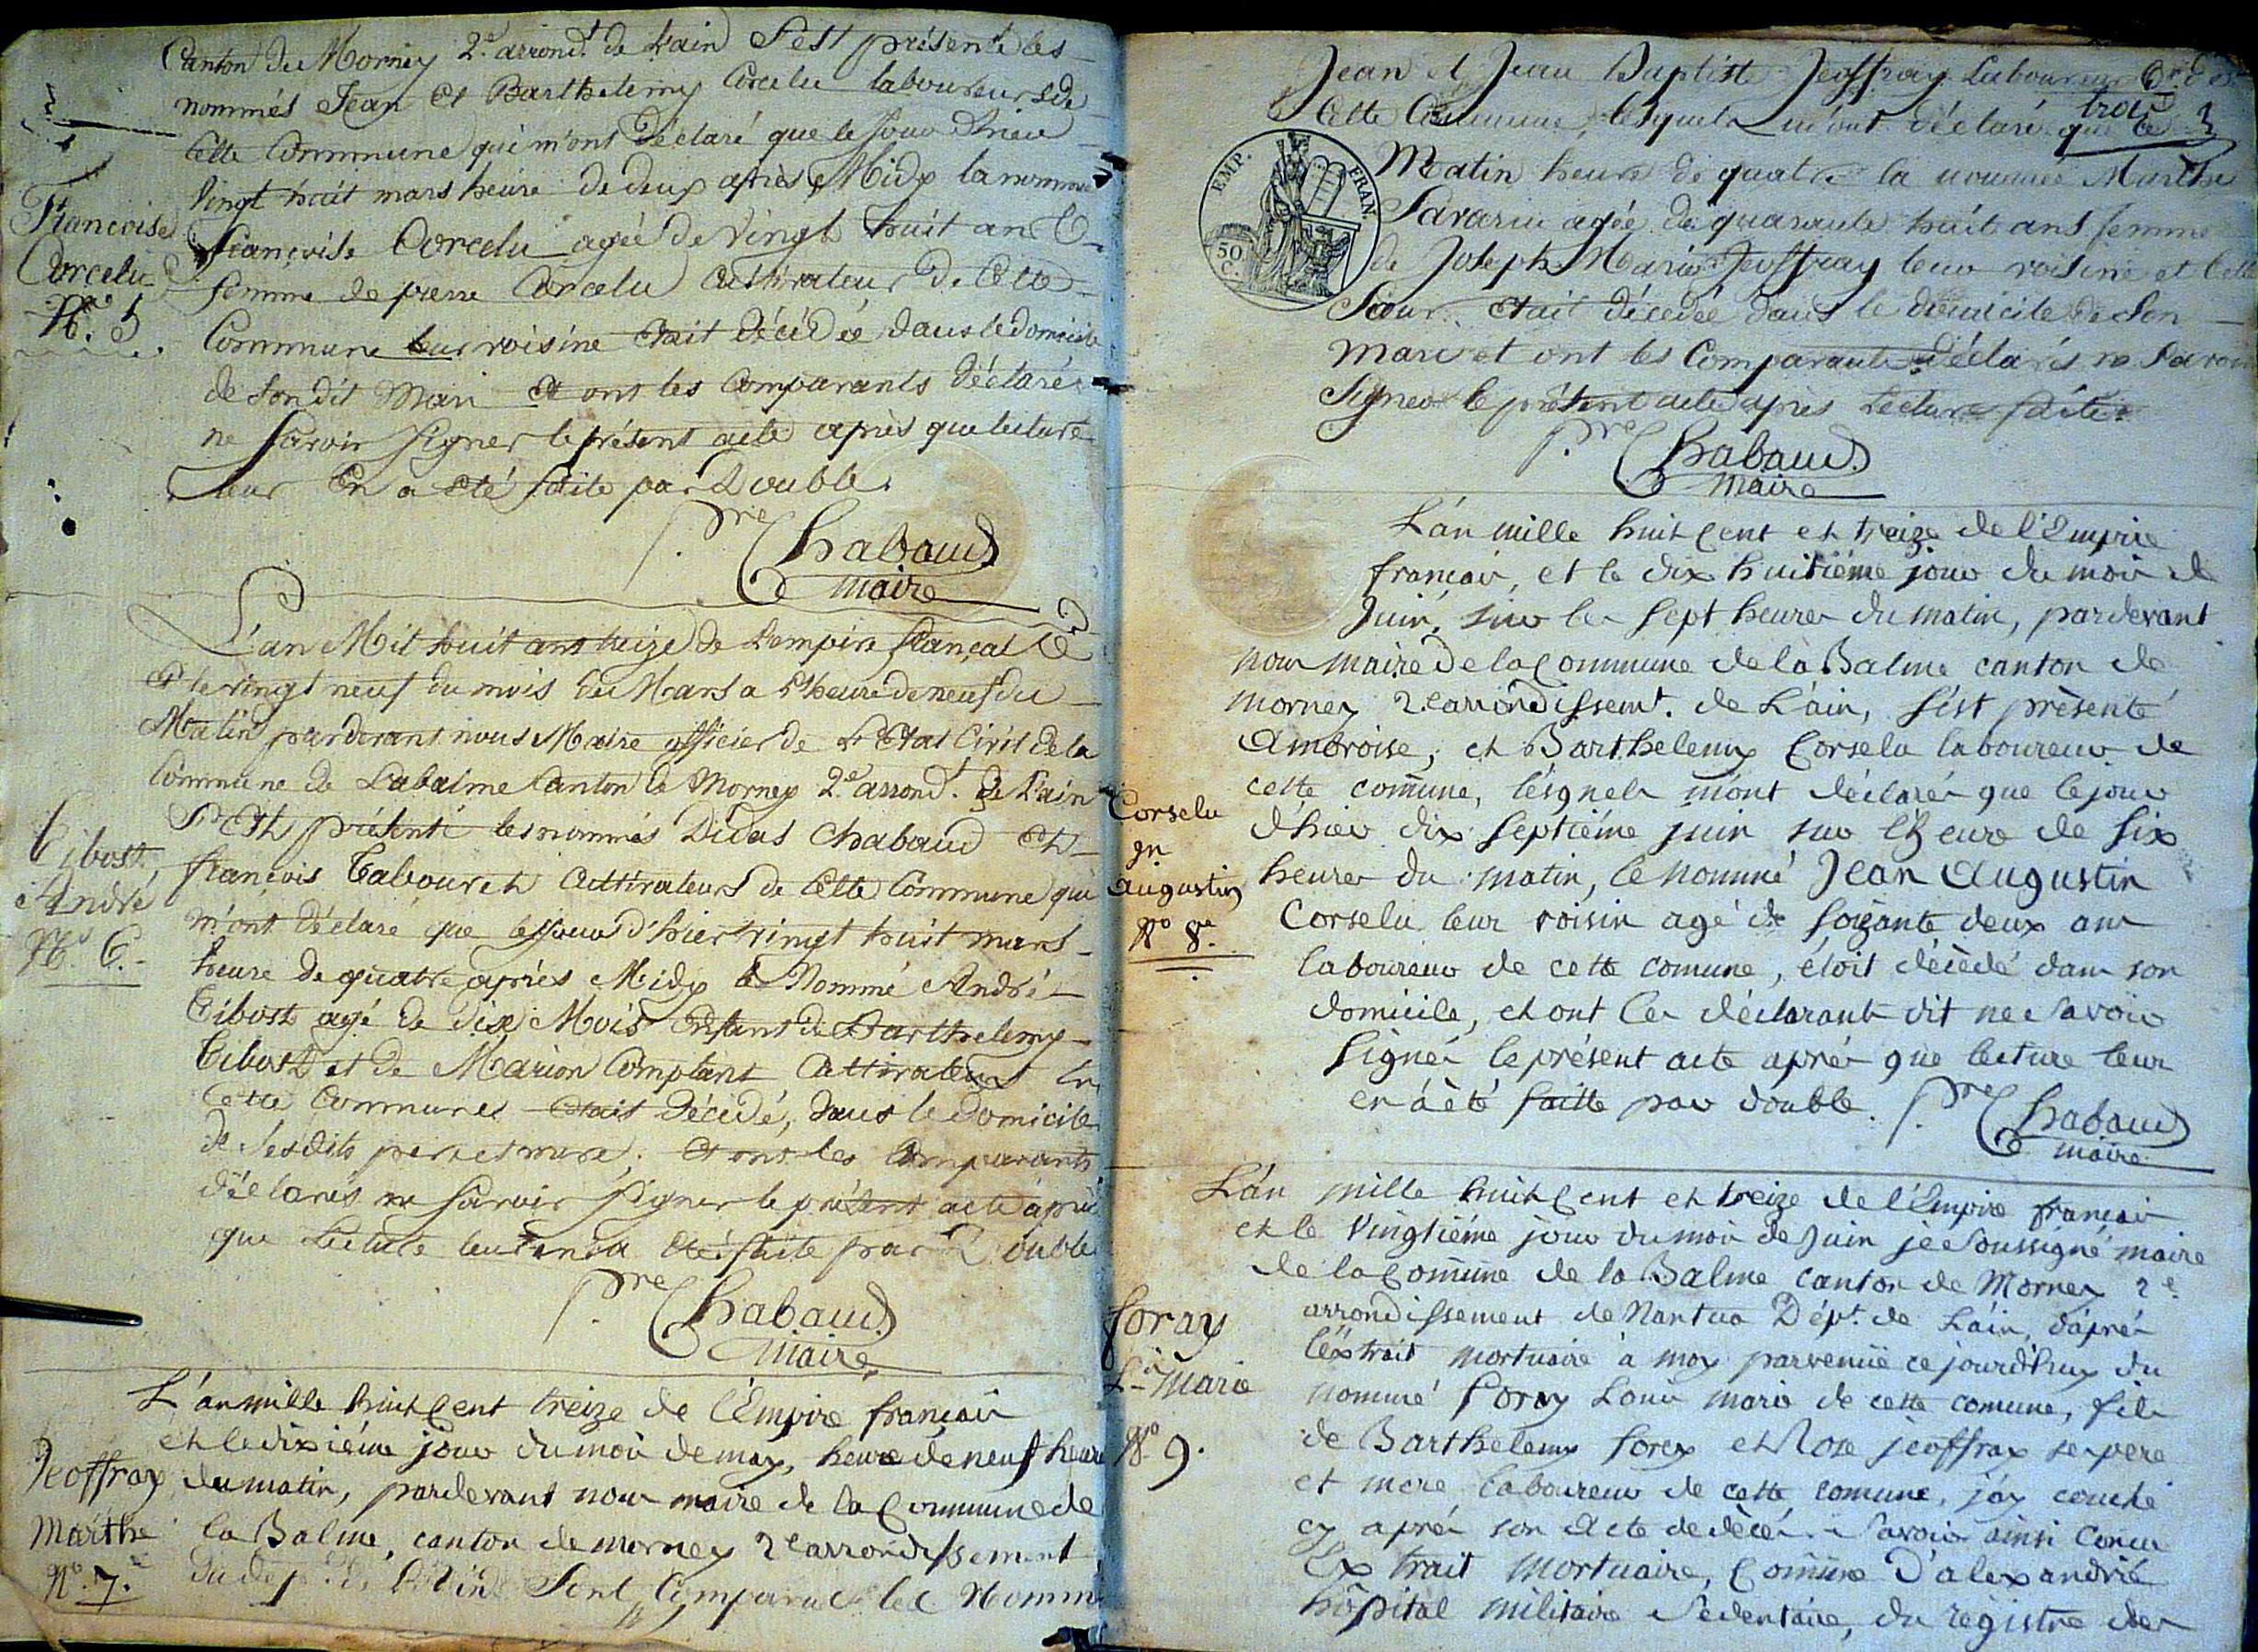 Canton du Morney 2.e arrond.t de L'ain S'est présenté les
nommés Jean et Barthelemy Corcelu laboureurs de
Cette Commune qui m'ont Déclaré que le jour d'hier
Vingt huit mars heure de deux après Midy la nommé
Françoise Corcelu agée de Vingt huit an
femme de pierre Corcelu Cultivateur de Cette
Commune leur voisine Etait Décédée dans le domicile
de Son dit Mari Et ont les Comparants Déclaré
ne Savoir Signer le présent acte après que lecture
leur En a Eté faite par Double.
P.re Chabaud
maire
Françoise
Corcelu
N.o 5
L'an Mil huit ans treize de L'empire français
Et le vingt neuf du mois du Mars a l'heure de neuf du
Matin par devant nous Maire officier de L'Etat Civil de la
Commune de Labalme Canton de Morney 2.e arrond.t de L'ain
S'Est présenté les nommés Didas Chabaud Et
françois Tabouret Cultivateurs de Cette Commune qui
m'ont Déclaré que le jour d'hier vingt huit mars
heure de quatre après Midy le Nommé André
Tibost agé de dix Mois Enfant de Barthelemy
Tibost et de Marion Complant Cultivateurs En
Cette Communes Etait Décédé, dans le domicile
de Ses dits pere et mere, Et ont les Comparants
déclarés ne Savoir Signer le présent acte après
que Lecture leur en a Eté faite par Double
P.re Chabaud
Maire
Tibost,
André
N.o 6.
L'an mille huit Cent treize de l'Empire français
et le dixiéme jour du mois de may, heure de neuf heure
du matin, pardevant nous maire de la Commune de
la Balme, canton de morney 2e arrondissement
du dep.t de L'Ain Sont Comparu les Nommé
Jeoffray
Marthe
N.o 7.
Jean et Jean Baptiste Jeoffray Laboureur
trois 3
Cette Commune, lesquels m'ont déclaré que ce
Matin heure de quatre la nommé Marthe
Savarin agée de quarante huit ans femme
de Joseph Marie Jeoffray leur voisine et belle
Sœur. était décedée dans le domicile de Son
mari et ont les Comparants déclarés ne Savoir
Signer le présent acte après Lecture faite
EMP. FRAN.
50
C.
P.re Chabaud
Maire
L'an mille huit Cent et treize de l'Empire
français, et le dix huitiéme jour du mois de
Juin, sur les Sept heures du matin, pardevant
nous maire de la Commune de la Balme canton de
morney 2e arrondissem.t de L'ain, s'ést présenté
Ambroise, et Barthelemy Corselu laboureur de
cette comune, lésquels m'ont déclarés que le jour
d'hier dix Septiéme juin sur l'heure de Six
heures du matin, le nommé Jean Augustin
Corselu leur voisin agé de Soixante deux ans
laboureur de cette comune, étoit décèdé dans son
domicile, et ont les déclarants dit ne Savoir
Signér le présent acte aprés que lecture leur
en à été faitte par double. P.re Chabaud
maire
Corselu
Jn
augustin
N.o 8.e
L'an mille huit Cent et treize de l'Empire français
et le Vingtiéme jour du mois de Juin je Soussigné maire
de la Comune de la Balme canton de Morney 2.e
arrondissement de Nantua Dépt. de L'ain, d'aprés
l'éxtrait mortuaire à moy parvenüe ce jourd'huy du
nommé Foray Louis marie de cette comune, fils
de Barthelemy forey et Rose jeoffray se pere
et mere laboureur de cette comune, j'ay couché
cy aprés son Acte de décés Savoir ainsi Conçu
Extrait Mortuaire, Comune D'alexandrié
hôpital militaire Sédentaire, du registre des
foray
L.s Marie
N.o 9.